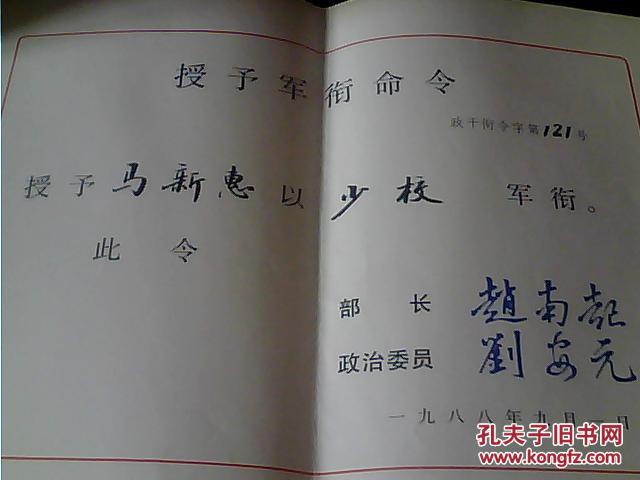 授予军衔命令
政干衔令字第121号
授予马新惠以少校军衔。
此令
部长 趙南起
政治委员 劉安元
一九八八年九月一日
孔夫子旧书网
KONGFZ.COM